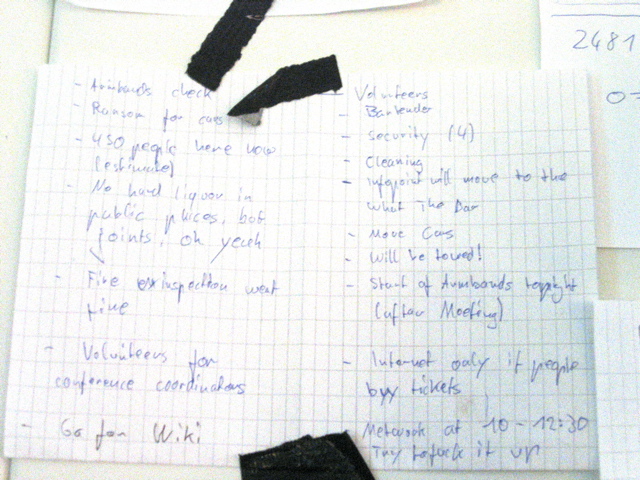 - Armbands check
- Ransom for cars
- 450 people here now
(estimate)
- No hard liquor in
public places, but
joints, oh yeah
- Fire inspection went
fine
- Volunteers for
conference coordinators
- Go for Wiki
- Volunteers
- Bartender
- Security (4)
- Cleaning
- Infopoint will move to the
What The Bar
- Move Cars
- Will be towed!
- Start of Armbands tonight
(after Meeting)
- Internet only if people
byy tickets
- Network at 10-12:30
Try to fuck it up
2481
0